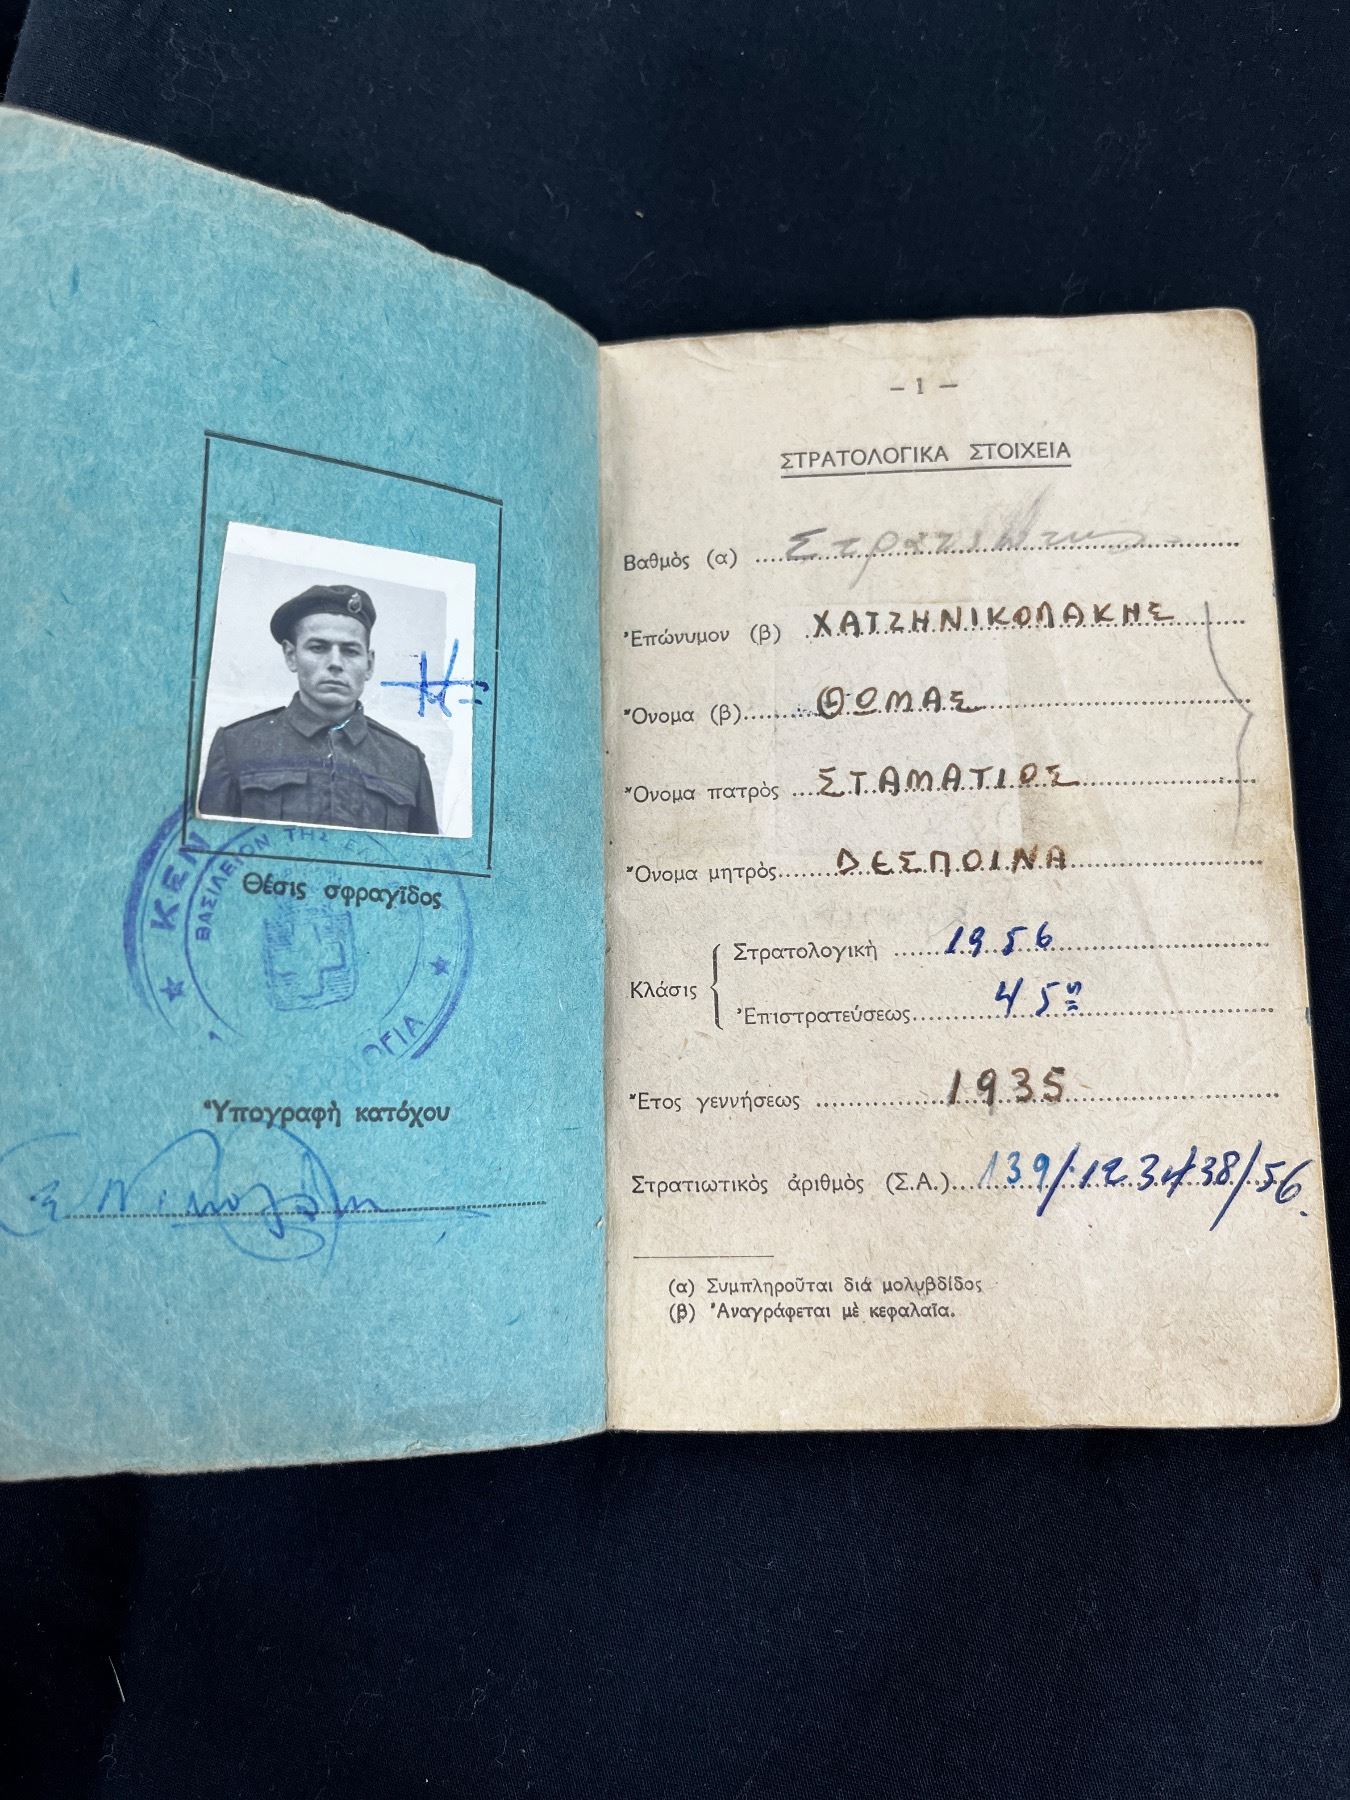 ΚΕΝ
ΒΑΣΙΛΕΙΟΝ ΤΗΣ
Θέσις σφραγῖδος
Ὑπογραφὴ κατόχου
— 1 —
ΣΤΡΑΤΟΛΟΓΙΚΑ ΣΤΟΙΧΕΙΑ
Βαθμὸς (α) Στρατιώτης
Ἐπώνυμον (β) ΧΑΤΖΗΝΙΚΟΛΑΚΗΣ
Ὄνομα (β) ΘΩΜΑΣ
Ὄνομα πατρὸς ΣΤΑΜΑΤΙΟΣ
Ὄνομα μητρὸς ΔΕΣΠΟΙΝΑ
Κλάσις
Στρατολογικὴ 1956
Ἐπιστρατεύσεως 45η
Ἔτος γεννήσεως 1935
Στρατιωτικὸς ἀριθμὸς (Σ.Α.) 139/123438/56.
(α) Συμπληροῦται διά μολυβδίδος
(β) Ἀναγράφεται μὲ κεφαλαῖα.